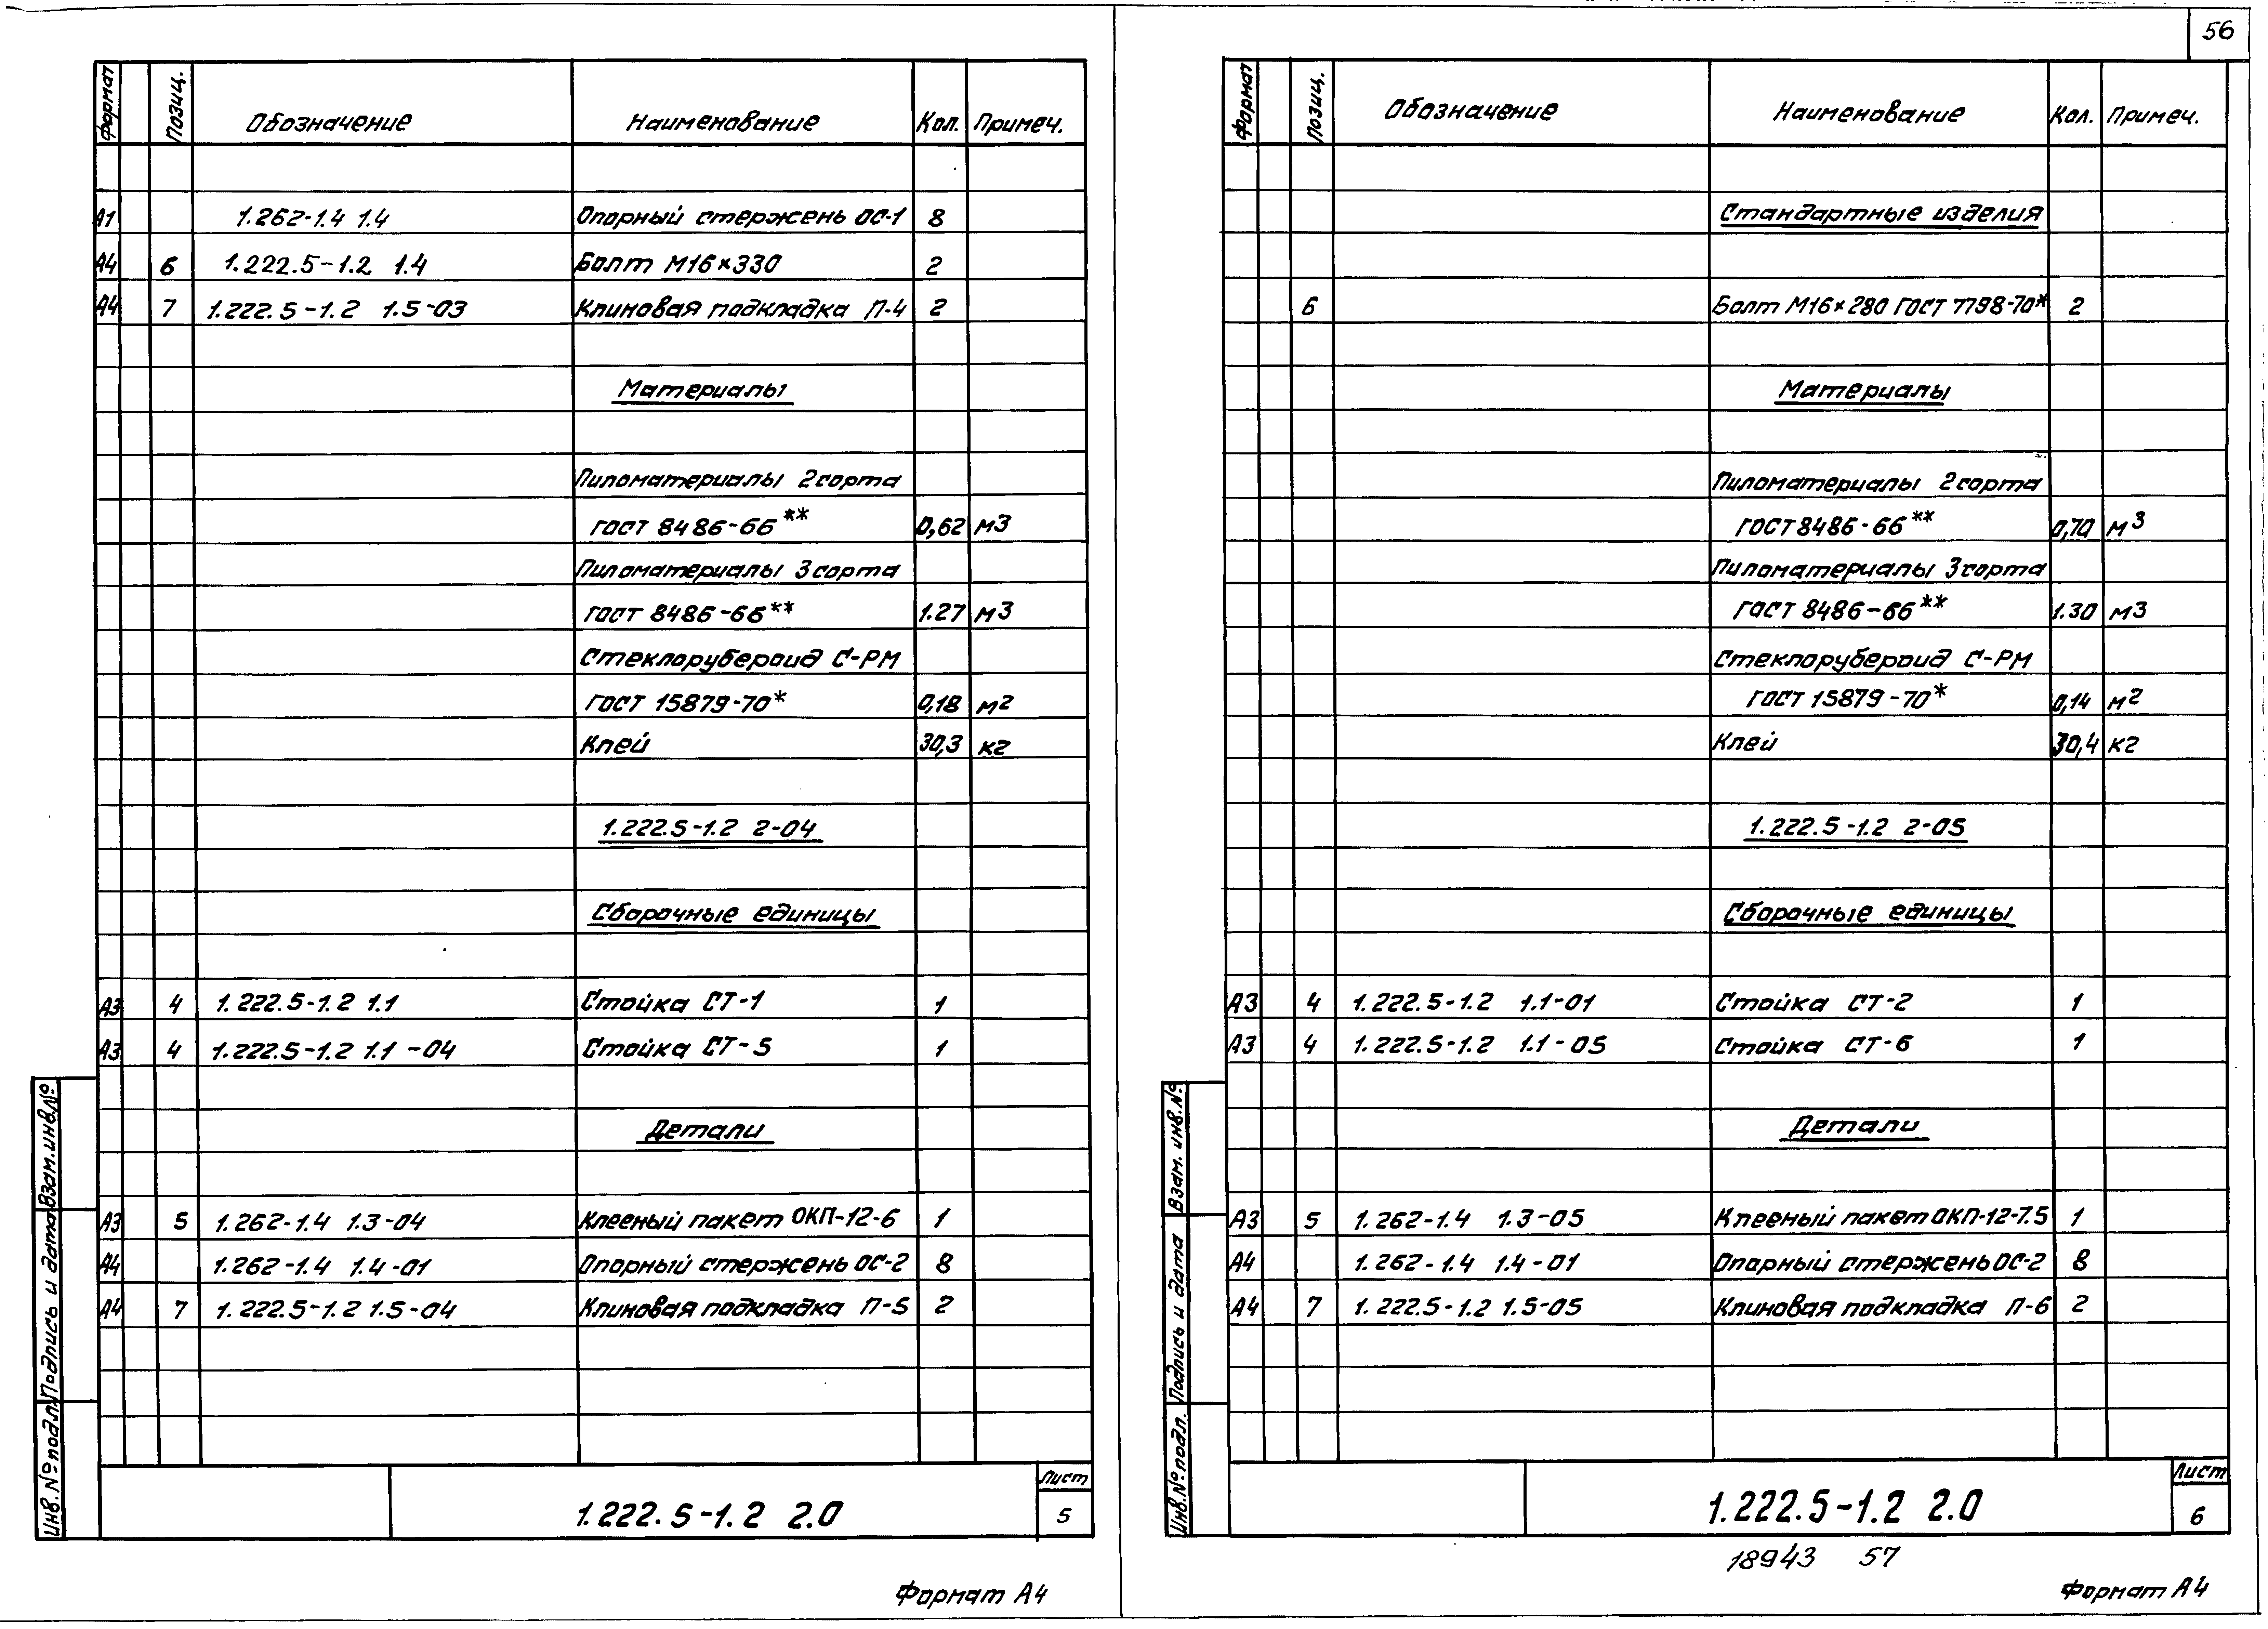 56
Формат Позиц. Обозначение Наименование Кол. Примеч.
А1 1.262-1.4 1.4 Опорный стержень ОС-1 8
А4 6 1.222.5-1.2 1.4 Болт М16×330 2
А4 7 1.222.5-1.2 1.5-03 Клиновая подкладка П-4 2
Материалы
Пиломатериалы 2 сорта
ГОСТ 8486-66** 0,62 м3
Пиломатериалы 3 сорта
ГОСТ 8486-66** 1.27 м3
Стеклорубероид С-РМ
ГОСТ 15879-70* 0,18 м2
Клей 30,3 кг
1.222.5-1.2 2-04
Сборочные единицы
А3 4 1.222.5-1.2 1.1 Стойка СТ-1 1
А3 4 1.222.5-1.2 1.1-04 Стойка СТ-5 1
Детали
А3 5 1.262-1.4 1.3-04 Клееный пакет ОКП-12-6 1
А4 1.262-1.4 1.4-01 Опорный стержень ОС-2 8
А4 7 1.222.5-1.2 1.5-04 Клиновая подкладка П-5 2
Взам. инв. №
Подпись и дата
Инв. № подл.
1.222.5-1.2 2.0
Лист
5
Формат А4
Формат Позиц. Обозначение Наименование Кол. Примеч.
Стандартные изделия
6 Болт М16×280 ГОСТ 7798-70* 2
Материалы
Пиломатериалы 2 сорта
ГОСТ 8486-66** 0,70 м3
Пиломатериалы 3 сорта
ГОСТ 8486-66** 1.30 м3
Стеклорубероид С-РМ
ГОСТ 15879-70* 0,14 м2
Клей 30,4 кг
1.222.5-1.2 2-05
Сборочные единицы
А3 4 1.222.5-1.2 1.1-01 Стойка СТ-2 1
А3 4 1.222.5-1.2 1.1-05 Стойка СТ-6 1
Детали
А3 5 1.262-1.4 1.3-05 Клееный пакет ОКП-12-7.5 1
А4 1.262-1.4 1.4-01 Опорный стержень ОС-2 8
А4 7 1.222.5-1.2 1.5-05 Клиновая подкладка П-6 2
Взам. инв. №
Подпись и дата
Инв. № подл.
1.222.5-1.2 2.0
Лист
6
18943 57
Формат А4